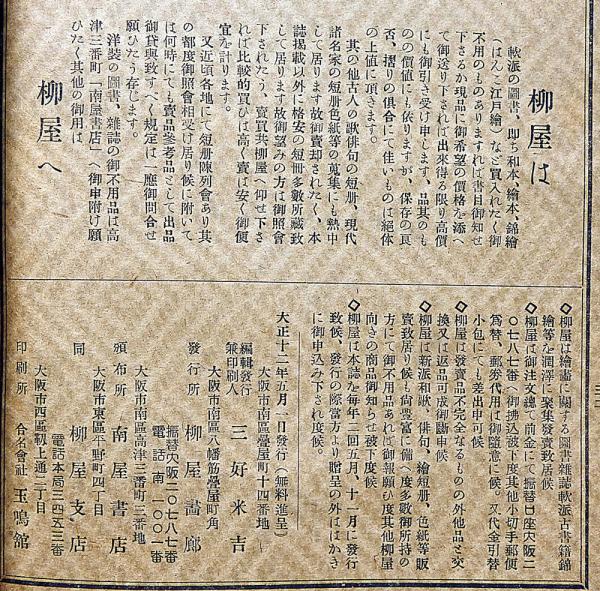 柳屋は
軟派の圖書、即ち和本、繪本、錦繪
(はんこ江戸繪)など買入れたく御
不用のものありますれば書目御知せ
下さるか現品に御希望の價格を添へ
て御送り下されば出來得る限り高價
にも御引き受け申します、品其のも
のの價値にも依りますが、保存の良
否、摺りの倶合にて佳いものは絕体
の上値に頂きます。
其の他古人の歌俳句の短册、現代
諸名家の短册色紙等の蒐集にも熱中
して居ります故御賣却されたく、本
誌掲載以外に格安の短冊多數所藏致
して居ります故御望みの方は御照會
下されたう、賣買共柳屋へ仰せ下さ
れば比較的買ひは高く賣は安く御便
宜を計ります。
又近頃各地にて短册陳列會あり其
の都度御照會相受け居り候に附いて
は何時にても賣品參考品として出品
御貸與致すべく規定は一應御問合せ
願ひたう存じます。
洋裝の圖書、雜誌の御不用品は高
津三番町「南屋書店」へ御申附け願
ひたく其他の御用は
柳屋へ
◇柳屋は繪畫に關する圖書雜誌軟派古書籍錦
繪等を潤澤に聚集發賣致居候
◇柳屋は御注文總て前金にて振替口座大阪二
〇七八七番へ御拂込被下度其他小切手郵便
爲替、郵劵代用は御隨意に候。又代金引替
小包にても差出申可候
◇柳屋は發賣品不完全なるものの外他品と交
換又は返品可成御斷申候
◇柳屋は新派和歌、俳句、繪短册、色紙等販
賣致居り候も尙豐富に備へ度多數御所持の
方にて御不用品あれば御報願ひ度其他柳屋
向きの商品御知らせ被下度候
◇柳屋は本誌を每年二回五月、十一月に發行
致候、發行の際當方より贈呈の外ははがき
に御申込み下され度候。
大正十二年五月一日發行(無料進呈)
大阪市南區疊屋町十四番地
編輯發行
兼印刷人 三好米吉
大阪市南區八幡筋疊屋町角
發行所 柳屋畵廊
振替大阪二〇七八七番
電話南一〇〇一番
大阪市南區高津三番町三番地
頒布所 南屋書店
大阪市東區平野町四丁目
同 柳屋支店
電話本局三四五三番
大阪市西區靱上通二丁目
印刷所 合名會社 玉鳴舘